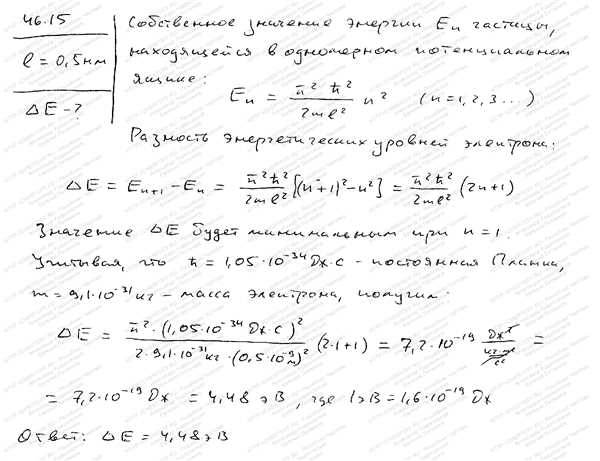 46.15
ℓ = 0,5 нм
ΔE - ?
Собственное значение энергии Eₙ частицы,
находящейся в одномерном потенциальном
ящике:
Eₙ = π²ħ²/2mℓ² n² (n = 1, 2, 3 ...)
Разность энергетических уровней электрона:
ΔE = Eₙ₊₁ - Eₙ = π²ħ²/2mℓ² [(n+1)² - n²] = π²ħ²/2mℓ² (2n+1)
Значение ΔE будет минимальным при n = 1.
Учитывая, что ħ = 1,05·10⁻³⁴ Дж·с - постоянная Планка,
m = 9,1·10⁻³¹ кг - масса электрона, получим:
ΔE = π²·(1,05·10⁻³⁴ Дж·с)²/2·9,1·10⁻³¹ кг·(0,5·10⁻⁹ м)² (2·1+1) = 7,2·10⁻¹⁹ Дж²/(кг·м²/с²) =
= 7,2·10⁻¹⁹ Дж = 4,48 эВ, где 1эВ = 1,6·10⁻¹⁹ Дж
Ответ: ΔE = 4,48 эВ